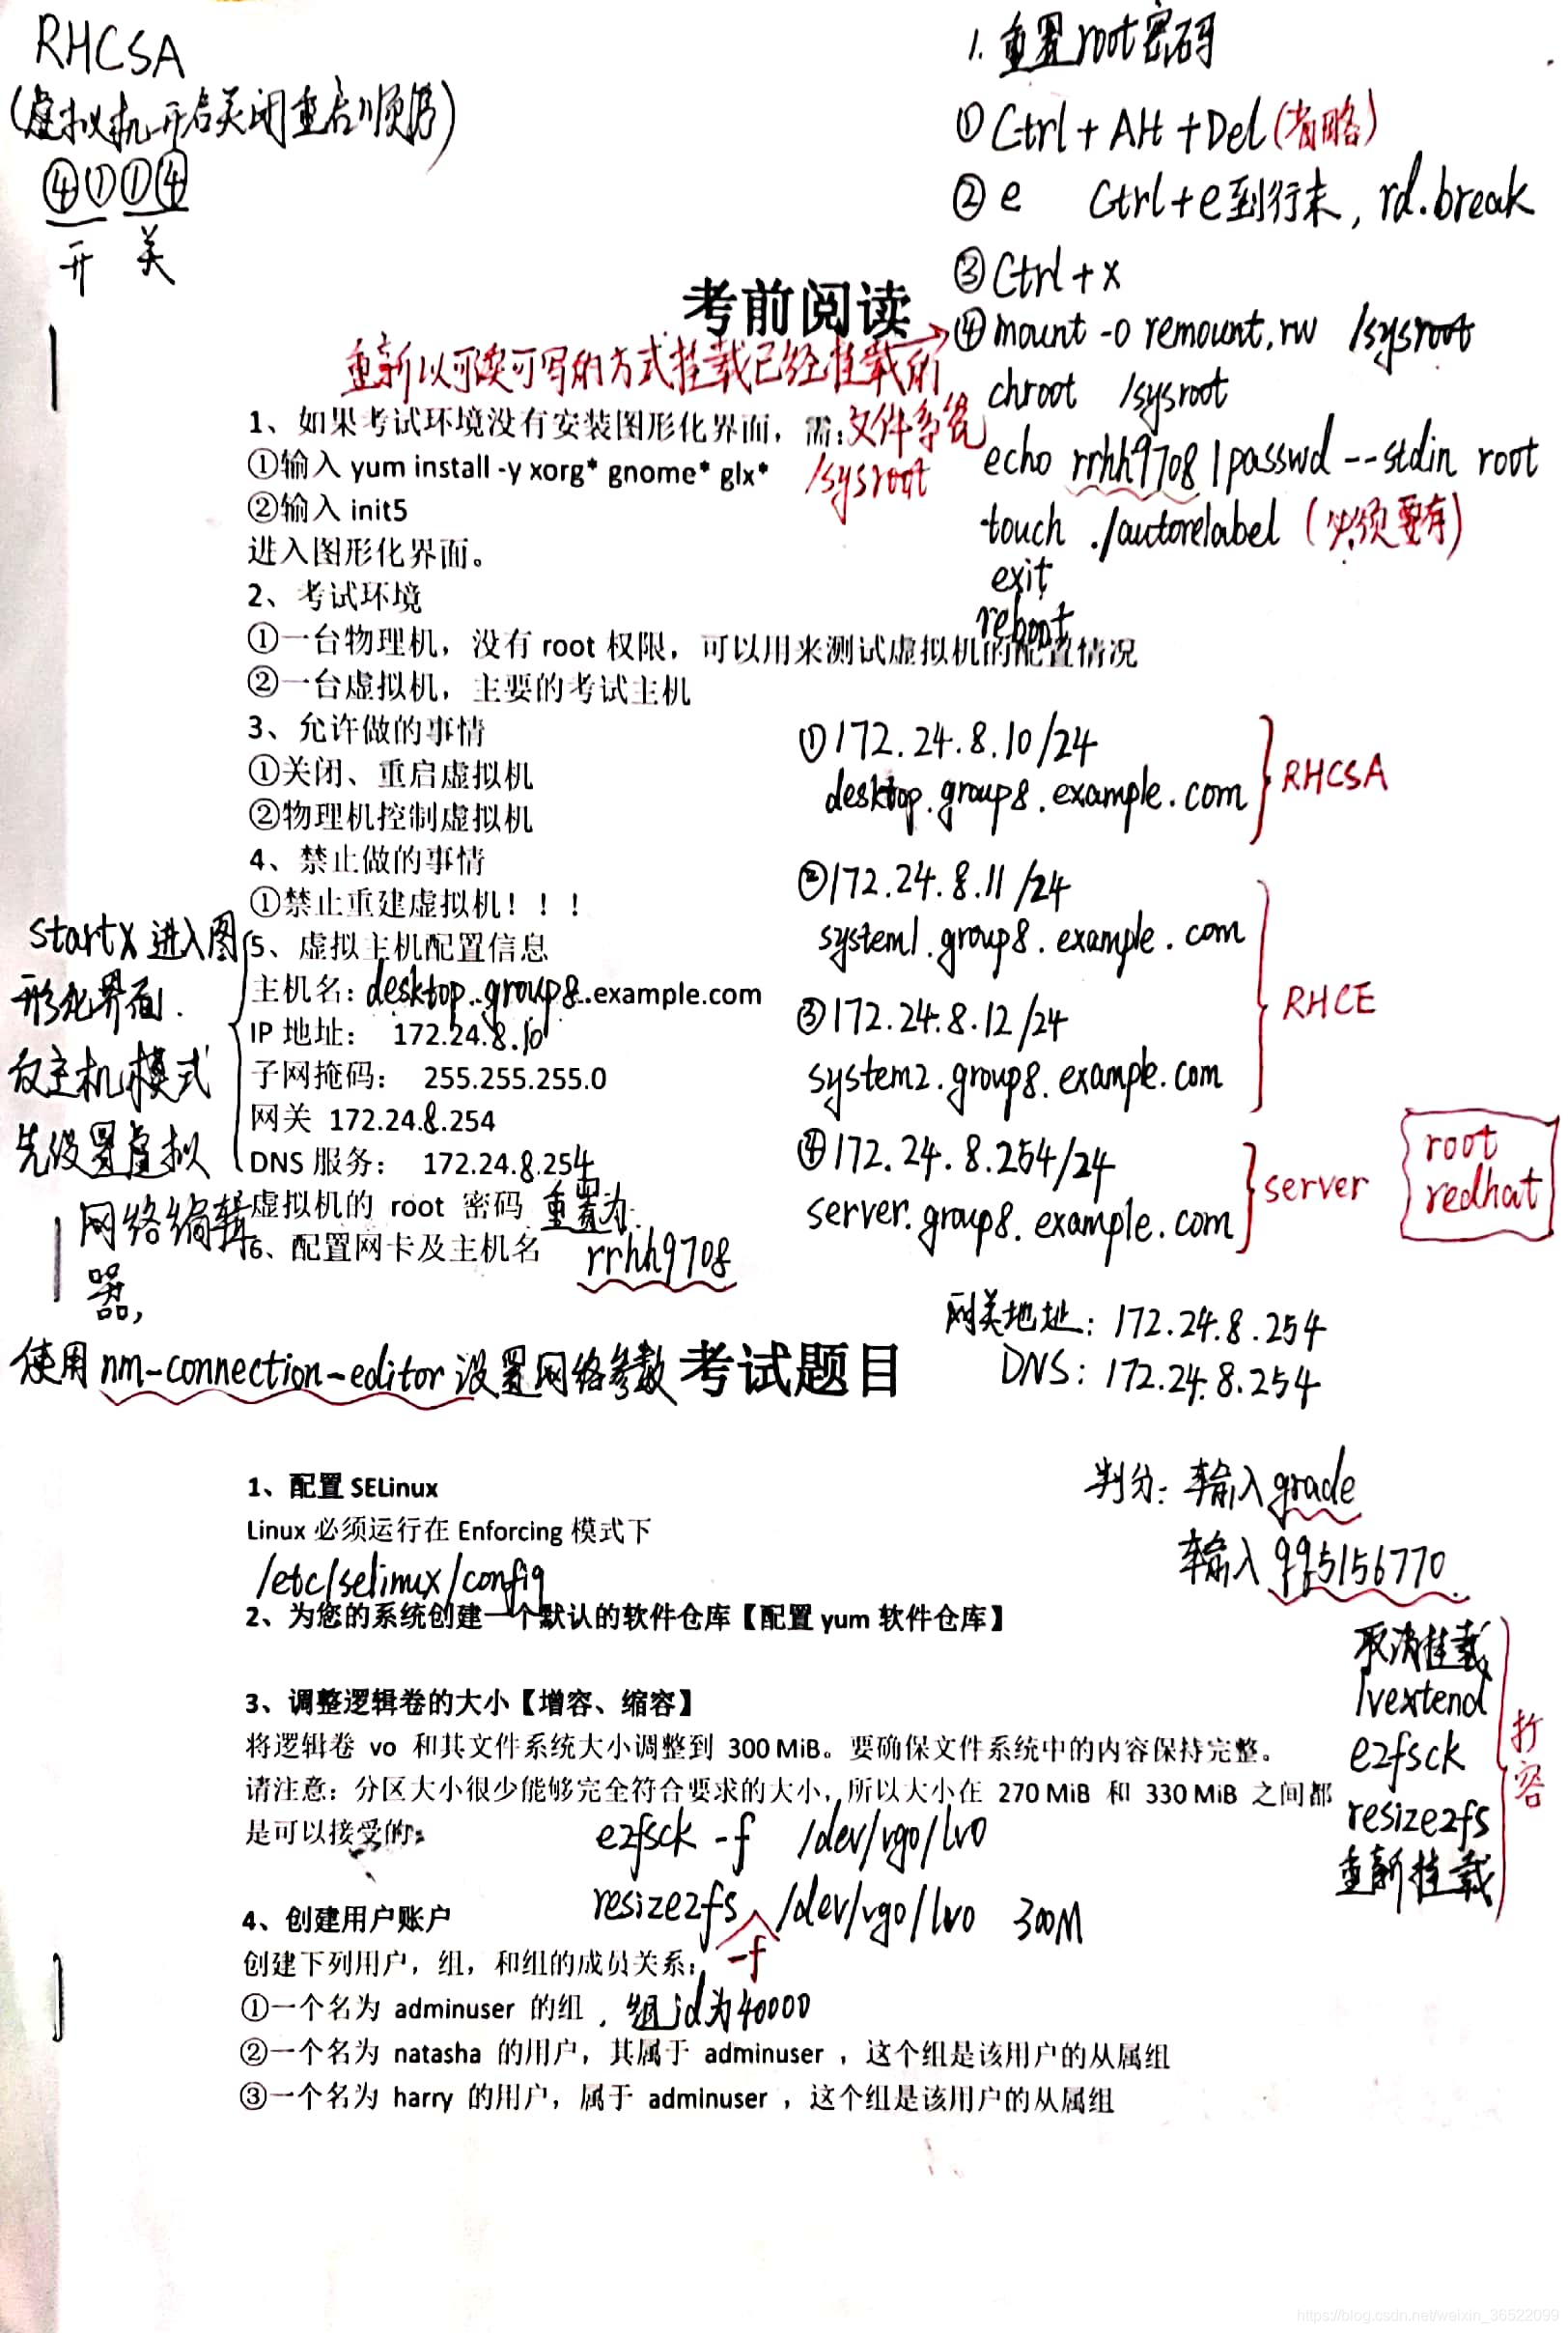 RHCSA
(虚拟机开启关闭重启顺序)
④①①④
开 关
1. 重置root密码
① Ctrl + Alt + Del (省略)
② e Ctrl+e到行末, rd.break
③ Ctrl + x
④ mount -o remount,rw /sysroot
chroot /sysroot
echo rrhh9708 | passwd --stdin root
touch ./autorelabel (必须要有)
exit
reboot
考前阅读
重新以可读可写的方式挂载已经挂载的
文件系统
/sysroot
1、如果考试环境没有安装图形化界面,需:
①输入 yum install -y xorg* gnome* glx*
②输入 init5
进入图形化界面。
2、考试环境
①一台物理机,没有 root 权限,可以用来测试虚拟机的配置情况
②一台虚拟机,主要的考试主机
3、允许做的事情
①关闭、重启虚拟机
②物理机控制虚拟机
4、禁止做的事情
①禁止重建虚拟机!!!
5、虚拟主机配置信息
主机名: desktop.group8.example.com
IP 地址: 172.24.8.10
子网掩码: 255.255.255.0
网关 172.24.8.254
DNS 服务: 172.24.8.254
虚拟机的 root 密码 重置为:
rrhh9708
6、配置网卡及主机名
startx 进入图
形化界面.
仅主机模式
先设置虚拟
网络编辑
器,
使用 nm-connection-editor 设置网络参数
① 172.24.8.10/24
desktop.group8.example.com
RHCSA
② 172.24.8.11/24
system1.group8.example.com
③ 172.24.8.12/24
system2.group8.example.com
RHCE
④ 172.24.8.254/24
server.group8.example.com
server
root
redhat
网关地址: 172.24.8.254
DNS: 172.24.8.254
考试题目
判分: 输入 grade
输入 995156770
1、配置 SELinux
Linux 必须运行在 Enforcing 模式下
/etc/selinux/config
2、为您的系统创建一个默认的软件仓库【配置 yum 软件仓库】
3、调整逻辑卷的大小【增容、缩容】
将逻辑卷 vo 和其文件系统大小调整到 300 MiB。要确保文件系统中的内容保持完整。
请注意:分区大小很少能够完全符合要求的大小,所以大小在 270 MiB 和 330 MiB 之间都
是可以接受的;
e2fsck -f /dev/vg0/lv0
resize2fs /dev/vg0/lv0 300M
-f
取消挂载
lvextend
e2fsck
resize2fs
重新挂载
扩容
4、创建用户账户
创建下列用户,组,和组的成员关系:
①一个名为 adminuser 的组, 组id为40000
②一个名为 natasha 的用户,其属于 adminuser ,这个组是该用户的从属组
③一个名为 harry 的用户,属于 adminuser ,这个组是该用户的从属组
https://blog.csdn.net/weixin_36522099